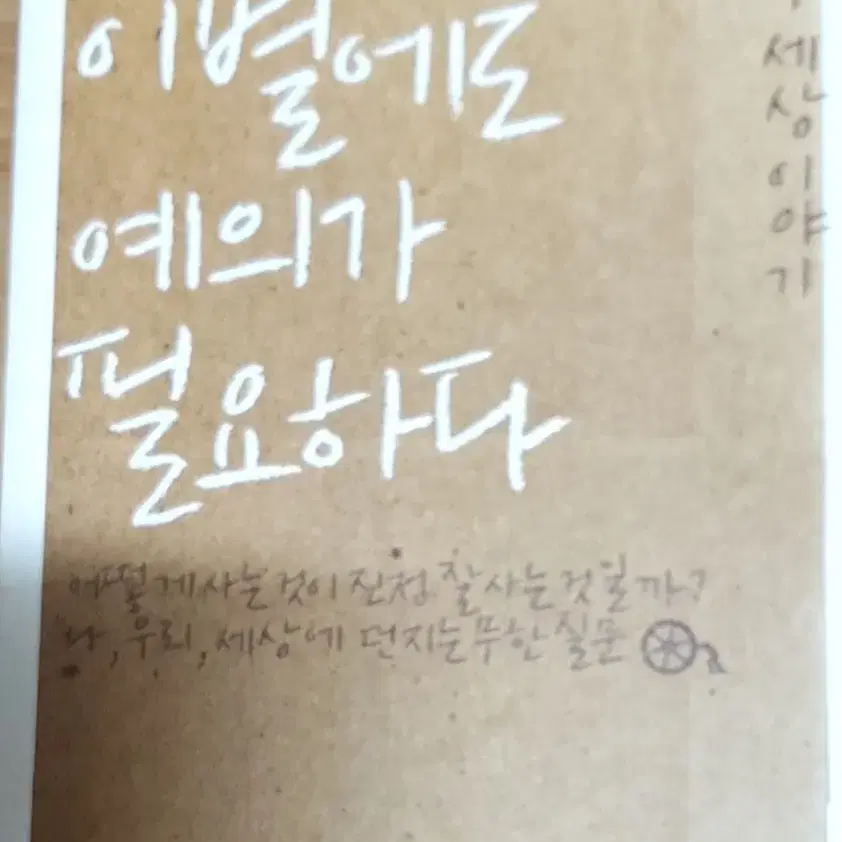 이별에도
예의가
필요하다
세상이야기
어떻게사는것이 진정 잘사는것일까?
나, 우리, 세상에 던지는무한질문